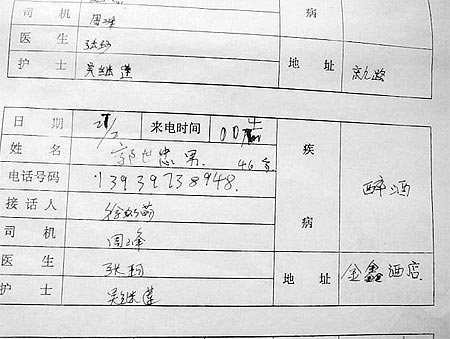 司 机 周峰 病
医 生 张均
护 士 吴继莲 地 址
日 期 21/2 来电时间
姓 名 郭世忠 男 46岁 疾
电话号码 13939738948 醉酒
接话人 病
司 机 周峰
医 生 张均 地 址 金鑫酒店
护 士 吴继莲